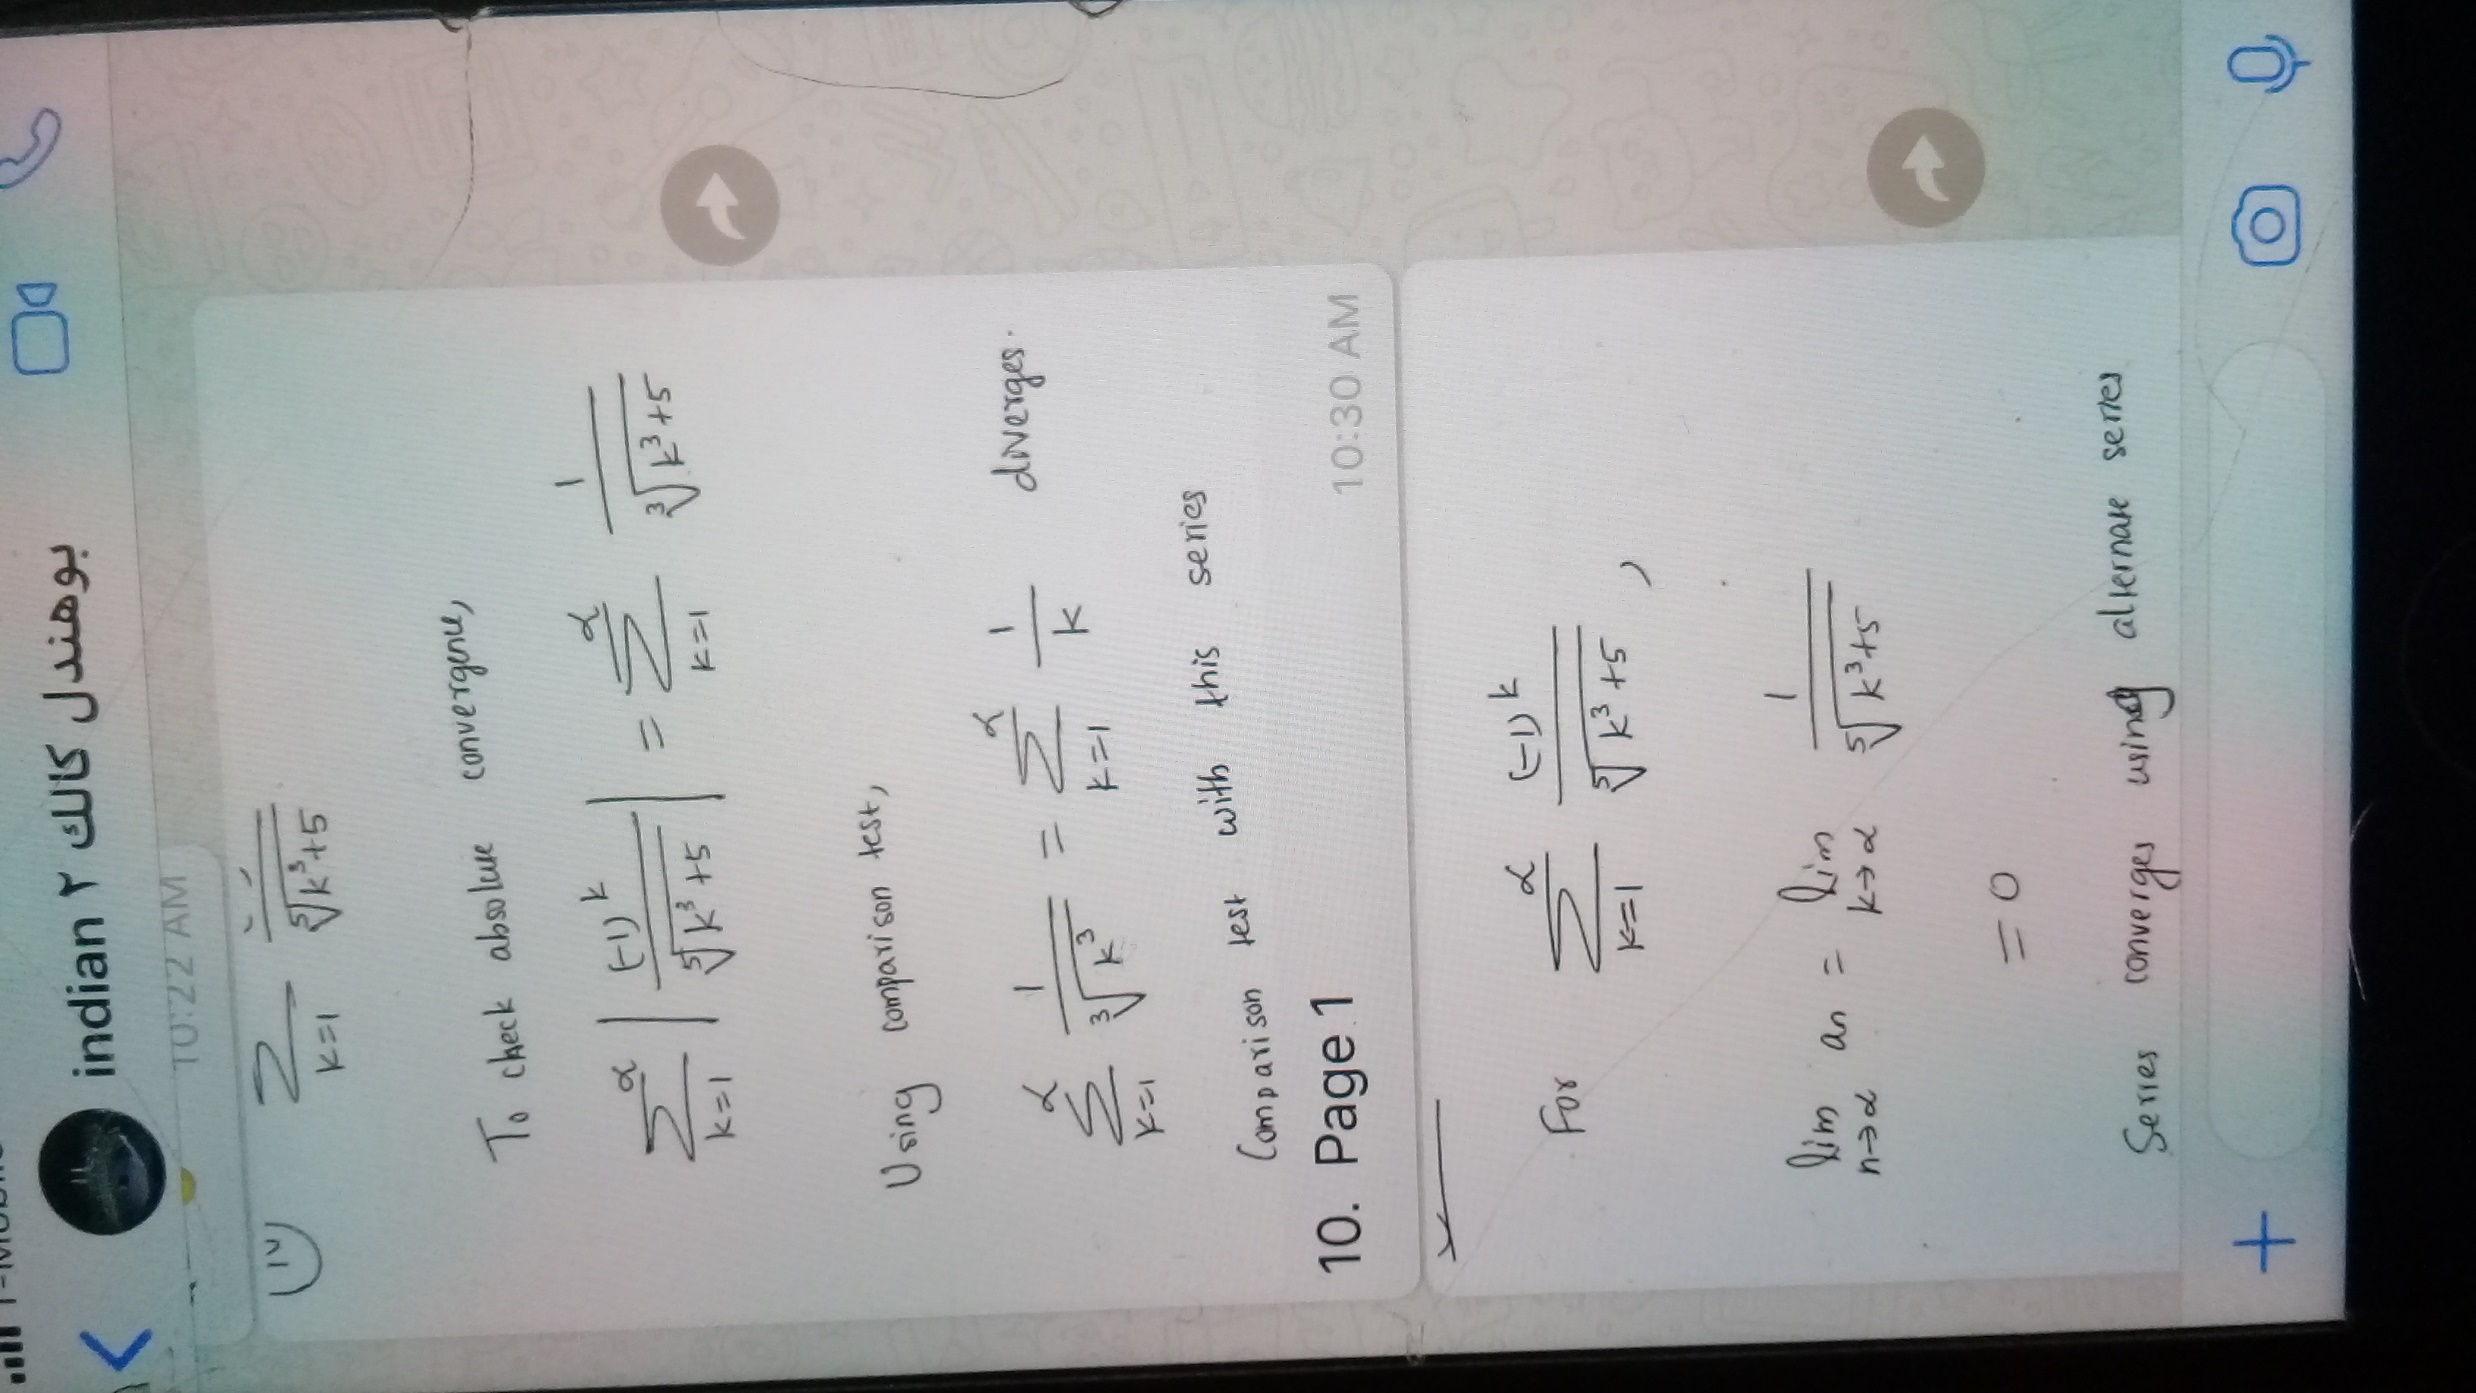 indian ٢ بوهندل كالك
10:22 AM
(iv) ∑ k=1 ⁵√k³+5
To check absolute convergence,
∑ k=1 ∝ | (-1)^k / ⁵√k³+5 | = ∑ k=1 ∝ 1 / ³√k³+5
Using comparison test,
∑ k=1 ∝ 1 / ³√k³ = ∑ k=1 ∝ 1 / k diverges.
Comparison test with this series
10. Page 1
10:30 AM
For ∑ k=1 ∝ (-1)^k / ⁵√k³+5 ,
lim n→∝ an = lim k→∝ 1 / ⁵√k³+5
= 0
Series converges using alternate series